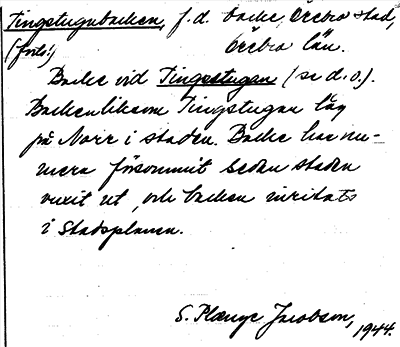 Tingstugubacken, f.d. backe, Örebro stad,
(forts.!) Örebro län.
Backe vid Tingsstugan (se d.o.).
Backen liksom Tingstugan låg
på Norr i staden. Backe har nu-
mera försvunnit sedan staden
vuxit ut, och backen inritats
i Stadsplanen.
S. Plænge Jacobson,
1944.